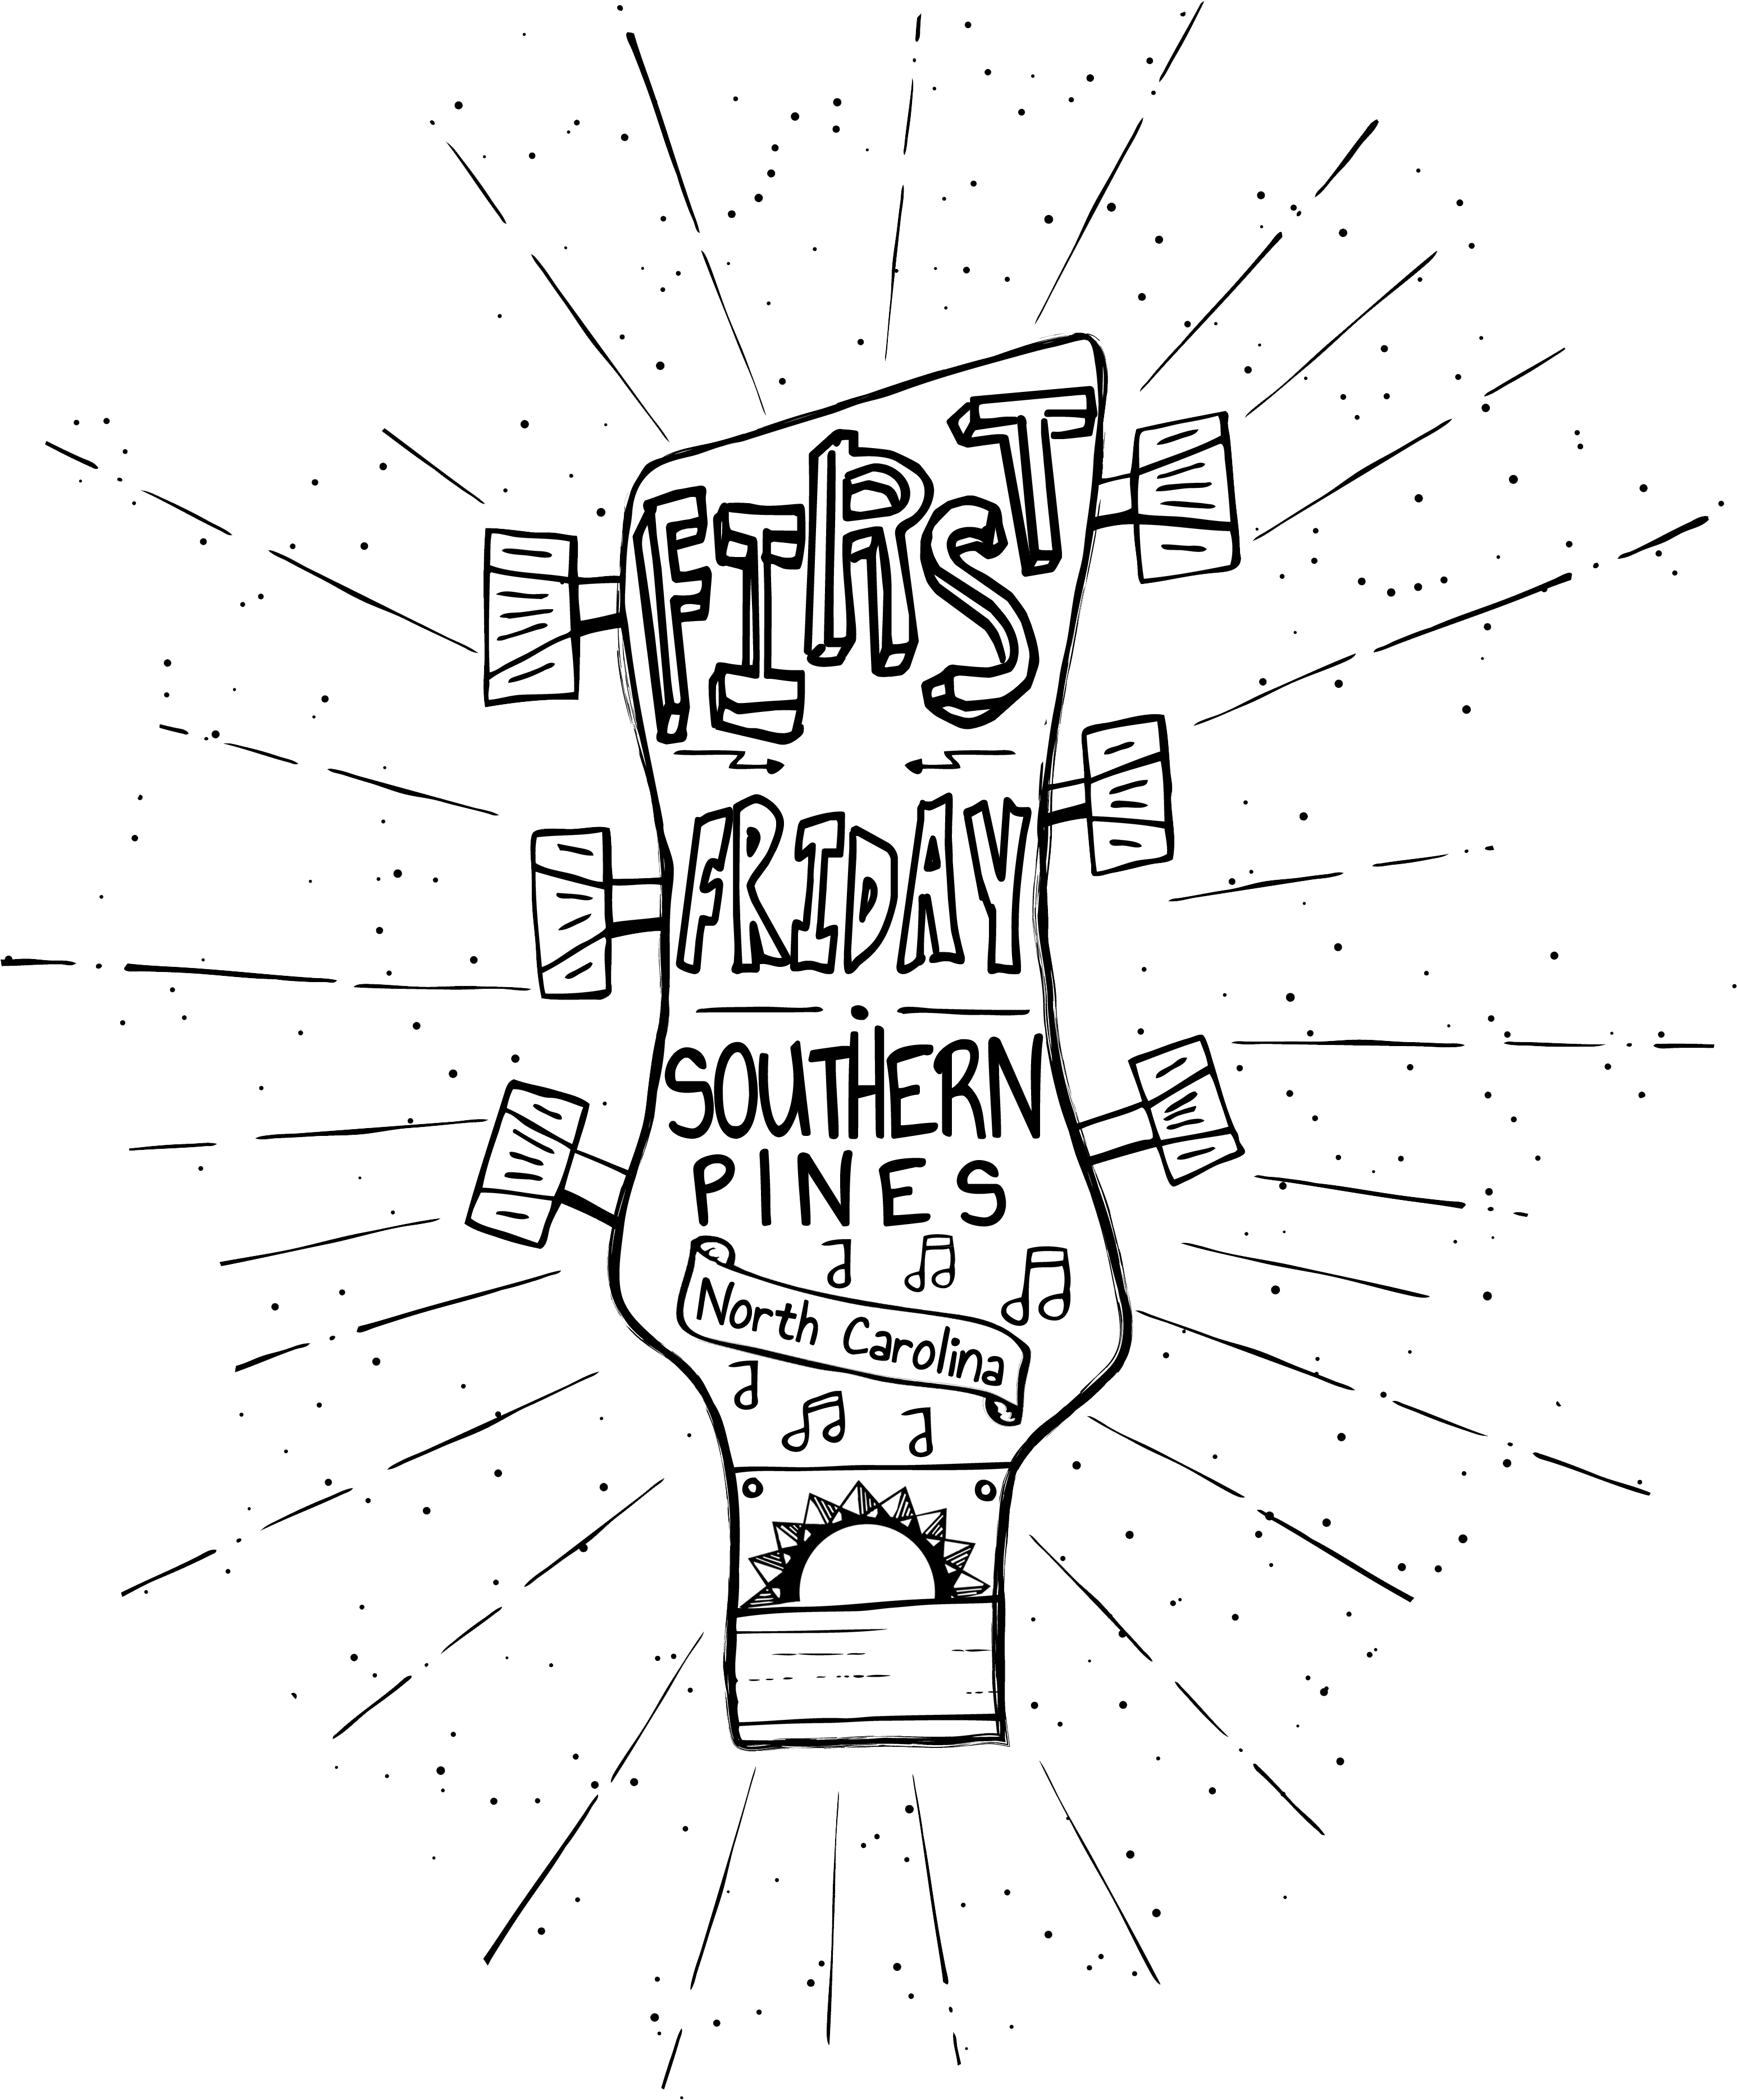 FIRST
FRIDAY
SOUTHERN
PINES
North Carolina